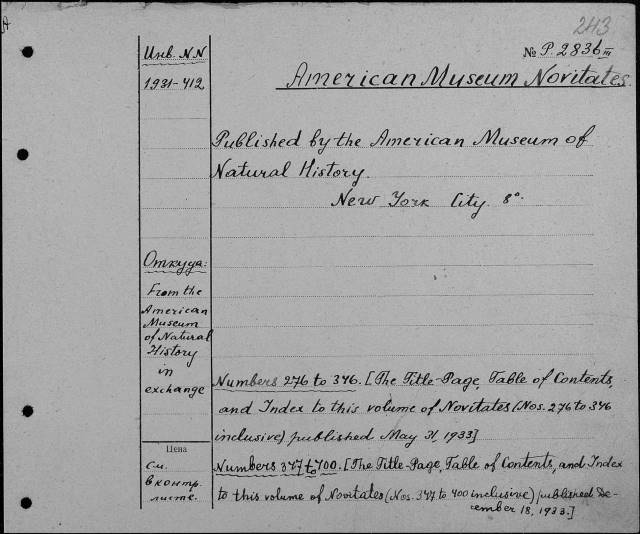 243
Инв. N N
№ P. 2836 III
1931-412
American Museum Novitates.
Published by the American Museum of
Natural History.
New York City. 8°.
Откуда:
From the
American
Museum
of Natural
History
in
exchange
Numbers 276 to 346. [The Title-Page, Table of Contents,
and Index to this volume of Novitates (Nos. 276 to 346
inclusive) published May 31, 1933]
Цена
см.
в контр.
листе.
Numbers 347 to 400. [The Title-Page, Table of Contents, and Index
to this volume of Novitates (Nos. 347 to 400 inclusive) published De-
cember 18, 1933.]